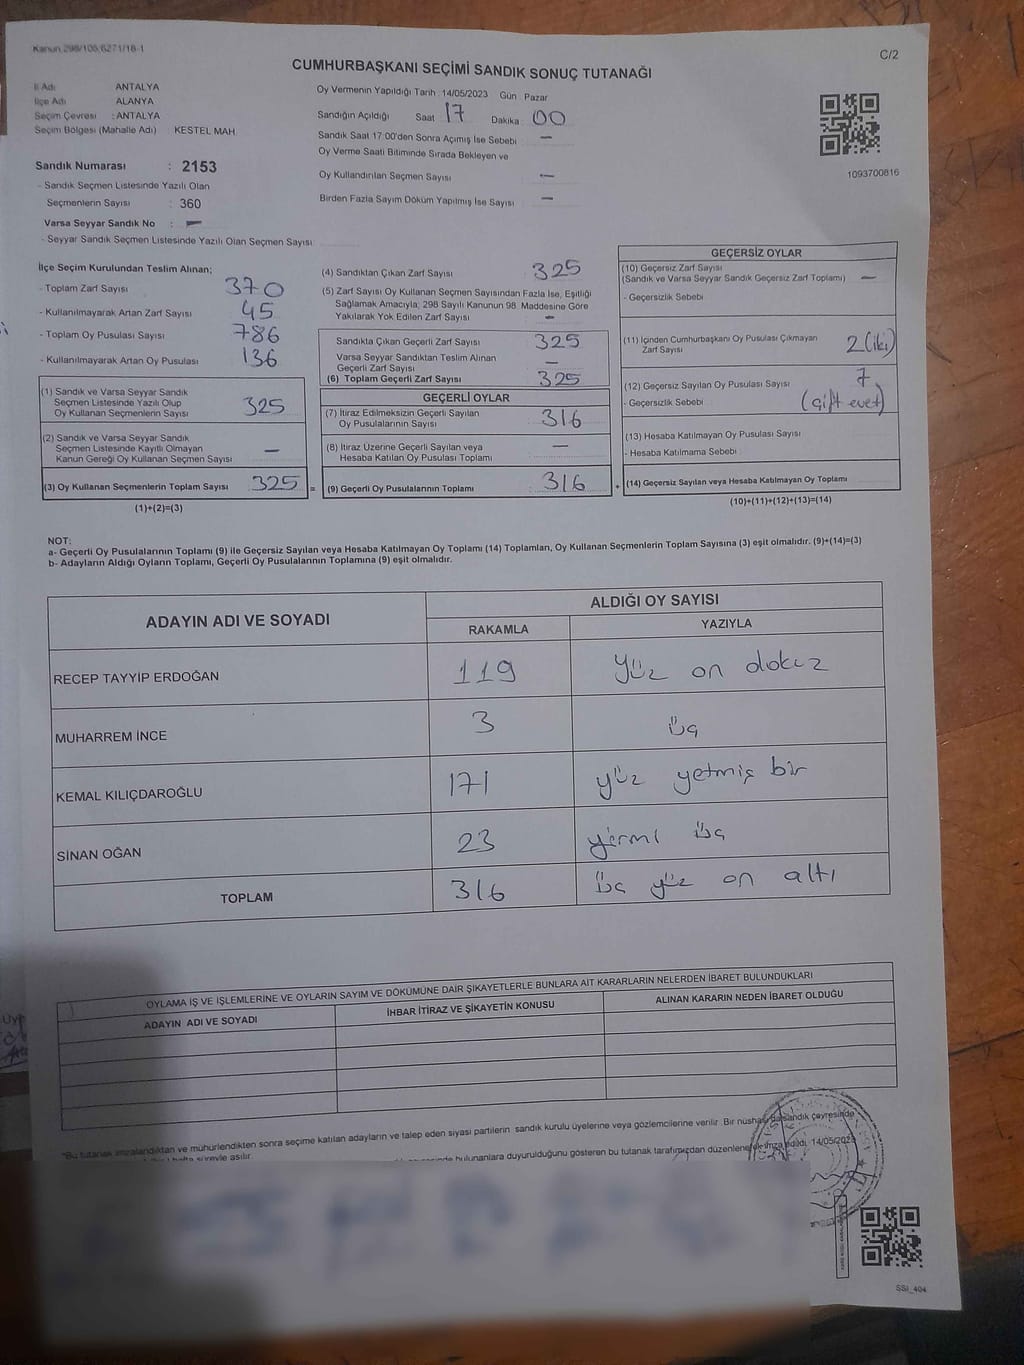 Kanun 298/105;6271/18-1
C/2
CUMHURBAŞKANI SEÇİMİ SANDIK SONUÇ TUTANAĞI
İl Adı ANTALYA
İlçe Adı ALANYA
Seçim Çevresi : ANTALYA
Seçim Bölgesi (Mahalle Adı) KESTEL MAH
Sandık Numarası : 2153
- Sandık Seçmen Listesinde Yazılı Olan
Seçmenlerin Sayısı : 360
Varsa Seyyar Sandık No : —
- Seyyar Sandık Seçmen Listesinde Yazılı Olan Seçmen Sayısı
Oy Vermenin Yapıldığı Tarih : 14/05/2023 Gün : Pazar
Sandığın Açıldığı Saat 17 Dakika 00
Sandık Saat 17:00'den Sonra Açılmış İse Sebebi —
Oy Verme Saati Bitiminde Sırada Bekleyen ve
Oy Kullandırılan Seçmen Sayısı —
Birden Fazla Sayım Döküm Yapılmış İse Sayısı —
1093700816
İlçe Seçim Kurulundan Teslim Alınan;
- Toplam Zarf Sayısı 370
- Kullanılmayarak Artan Zarf Sayısı 45
- Toplam Oy Pusulası Sayısı 786
- Kullanılmayarak Artan Oy Pusulası 136
(1) Sandık ve Varsa Seyyar Sandık
Seçmen Listesinde Yazılı Olup
Oy Kullanan Seçmenlerin Sayısı 325
(2) Sandık ve Varsa Seyyar Sandık
Seçmen Listesinde Kayıtlı Olmayan
Kanun Gereği Oy Kullanan Seçmen Sayısı —
(3) Oy Kullanan Seçmenlerin Toplam Sayısı 325 =
(1)+(2)=(3)
(4) Sandıktan Çıkan Zarf Sayısı 325
(5) Zarf Sayısı Oy Kullanan Seçmen Sayısından Fazla İse, Eşitliği
Sağlamak Amacıyla; 298 Sayılı Kanunun 98. Maddesine Göre
Yakılarak Yok Edilen Zarf Sayısı —
Sandıkta Çıkan Geçerli Zarf Sayısı 325
Varsa Seyyar Sandıktan Teslim Alınan
Geçerli Zarf Sayısı —
(6) Toplam Geçerli Zarf Sayısı 325
GEÇERLİ OYLAR
(7) İtiraz Edilmeksizin Geçerli Sayılan
Oy Pusulalarının Sayısı 316
(8) İtiraz Üzerine Geçerli Sayılan veya
Hesaba Katılan Oy Pusulası Toplamı —
(9) Geçerli Oy Pusulalarının Toplamı 316 +
GEÇERSİZ OYLAR
(10) Geçersiz Zarf Sayısı
(Sandık ve Varsa Seyyar Sandık Geçersiz Zarf Toplamı) —
- Geçersizlik Sebebi
(11) İçinden Cumhurbaşkanı Oy Pusulası Çıkmayan
Zarf Sayısı 2 (iki)
(12) Geçersiz Sayılan Oy Pusulası Sayısı 7
- Geçersizlik Sebebi (çift evet)
(13) Hesaba Katılmayan Oy Pusulası Sayısı
- Hesaba Katılmama Sebebi
(14) Geçersiz Sayılan veya Hesaba Katılmayan Oy Toplamı
(10)+(11)+(12)+(13)=(14)
NOT:
a- Geçerli Oy Pusulalarının Toplamı (9) ile Geçersiz Sayılan veya Hesaba Katılmayan Oy Toplamı (14) Toplamları, Oy Kullanan Seçmenlerin Toplam Sayısına (3) eşit olmalıdır. (9)+(14)=(3)
b- Adayların Aldığı Oyların Toplamı, Geçerli Oy Pusulalarının Toplamına (9) eşit olmalıdır.
ADAYIN ADI VE SOYADI
ALDIĞI OY SAYISI
RAKAMLA YAZIYLA
RECEP TAYYİP ERDOĞAN 119 Yüz on dokuz
MUHARREM İNCE 3 üç
KEMAL KILIÇDAROĞLU 171 yüz yetmiş bir
SİNAN OĞAN 23 yirmi üç
TOPLAM 316 üç yüz on altı
OYLAMA İŞ VE İŞLEMLERİNE VE OYLARIN SAYIM VE DÖKÜMÜNE DAİR ŞİKAYETLERLE BUNLARA AİT KARARLARIN NELERDEN İBARET BULUNDUKLARI
ADAYIN ADI VE SOYADI İHBAR İTİRAZ VE ŞİKAYETİN KONUSU ALINAN KARARIN NEDEN İBARET OLDUĞU
*Bu tutanak imzalandıktan ve mühürlendikten sonra seçime katılan adayların ve talep eden siyasi partilerin sandık kurulu üyelerine veya gözlemcilerine verilir. Bir nüshası da sandık çevresinde
hafta süreyle asılır. bulunanlara duyurulduğunu gösteren bu tutanak tarafımızdan düzenlenerek imza edildi. 14/05/2023
SSI_404